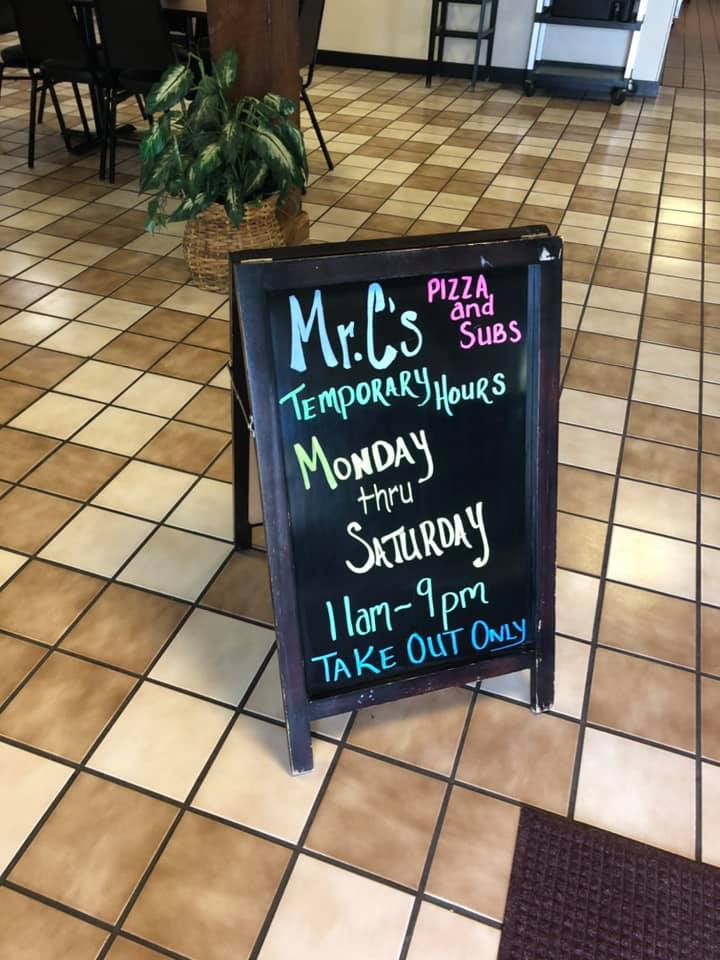 Mr.C's PIZZA and SUBS
TEMPORARY HOURS
MONDAY
thru
SATURDAY
11am-9pm
TAKE OUT ONLY